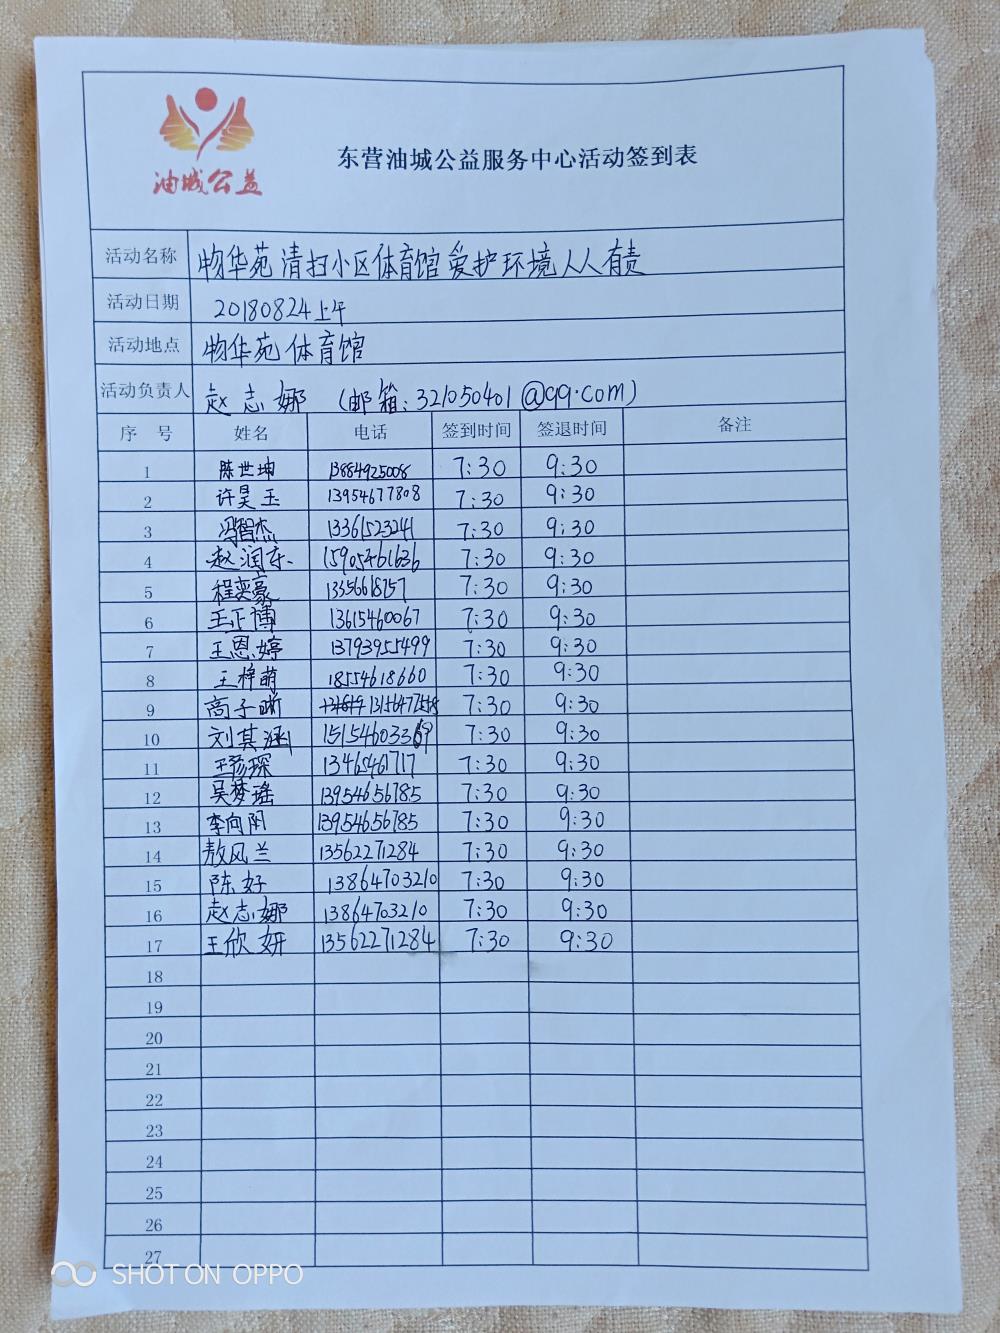 油城公益
东营油城公益服务中心活动签到表
活动名称 物华苑清扫小区体育馆爱护环境人人有责
活动日期 20180824上午
活动地点 物华苑体育馆
活动负责人 赵志娜 (邮箱:321050401@qq.com)
序号 姓名 电话 签到时间 签退时间 备注
1 陈世坤 13884925008 7:30 9:30
2 许昊玉 13954677808 7:30 9:30
3 冯智杰 13361523241 7:30 9:30
4 赵润东 15905461636 7:30 9:30
5 程奕豪 7:30 9:30
6 王正博 13615460067 7:30 9:30
7 王恩婷 13793955499 7:30 9:30
8 王梓萌 18554618660 7:30 9:30
9 高子晰 7:30 9:30
10 刘其涵 7:30 9:30
11 王彦琛 13465461717 7:30 9:30
12 吴梦瑶 13954656785 7:30 9:30
13 李向阳 13954656785 7:30 9:30
14 敖风兰 13562271284 7:30 9:30
15 陈好 13864703210 7:30 9:30
16 赵志娜 13864703210 7:30 9:30
17 王欣妍 13562271284 7:30 9:30
18
19
20
21
22
23
24
25
26
27
SHOT ON OPPO